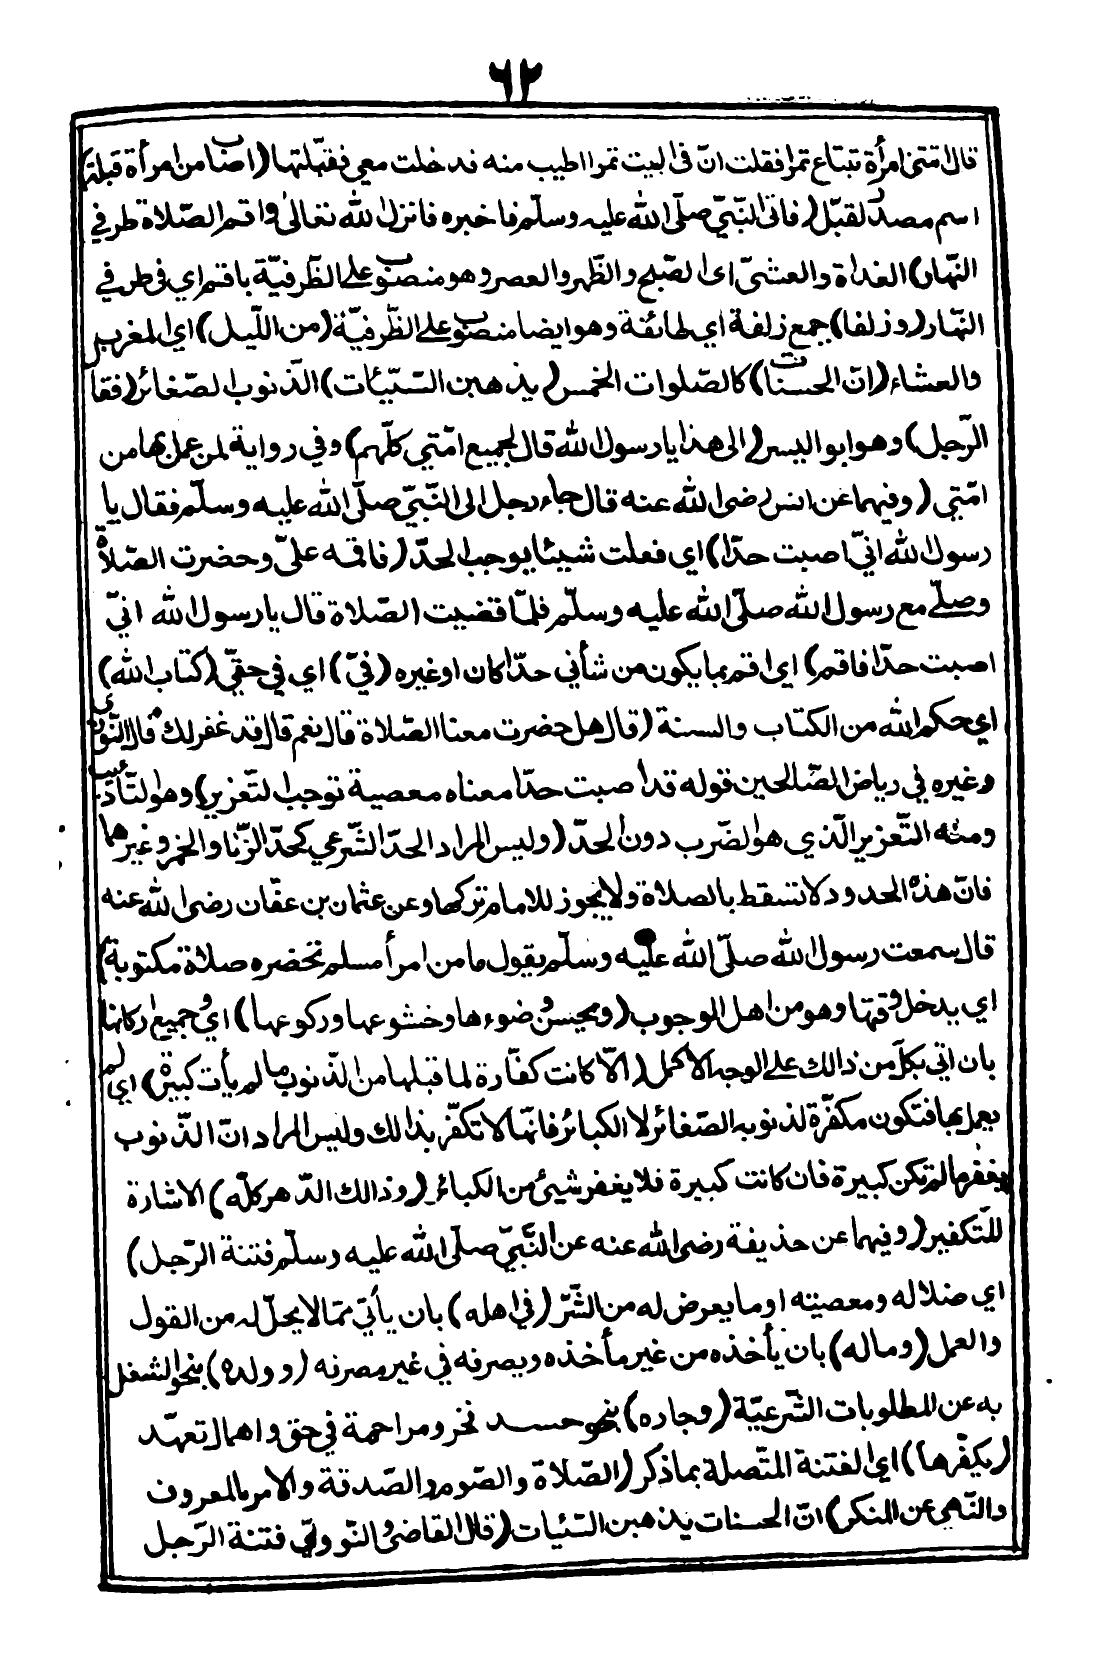 ٦٢
قال اتتني امرأة تبتاع تمرا فقلت انّ في البيت تمرا اطيب منه فدخلت معي فقبّلتها (اصاب من امرأة قبلة)
اسم مصدر لقبّل (فاتى النّبيّ صلّى الله عليه وسلّم فاخبره فانزل الله تعالى واقم الصّلاة طرفي
النّهار) الغداة والعشيّ اى الصّبح والظّهر والعصر وهو منصوب على الظّرفيّة باقم اي في طرفي
النّهار (وزلفا) جمع زلفة اي طائفة وهو ايضا منصوب على الظّرفيّة (من اللّيل) اي المغرب
والعشاء (انّ الحسنات) كالصّلوات الخمس (يذهبن السّيّئات) الذّنوب الصّغائر (فقال
الرّجل) وهو ابو اليسر (الى هذا يا رسول الله قال لجميع امّتي كلّهم) وفي رواية لمن عمل بها من
امّتي (وفيهما عن انس رضى الله عنه قال جاء رجل الى النّبيّ صلّى الله عليه وسلّم فقال يا
رسول الله انّي اصبت حدّا) اي فعلت شيئا يوجب الحدّ (فاقمه عليّ وحضرت الصّلاة
وصلّى مع رسول الله صلّى الله عليه وسلّم فلمّا قضيت الصّلاة قال يا رسول الله انّي
اصبت حدّا فاقم) اي اقم بما يكون من شأني حدّا كان او غيره (فيّ) اي في حقّي (كتاب الله)
اي حكم الله من الكتاب والسنة (قال هل حضرت معنا الصّلاة قال نعم قال قد غفر لك قال النّووي
وغيره في رياض الصّالحين قوله قد اصبت حدّا معناه معصية توجب التعزير) وهو التّأديب
ومنه التّعزير الّذي هو الضّرب دون الحدّ (وليس المراد الحدّ الشّرعي كحدّ الزّنا والخمر وغيرها
فانّ هذه الحدود لا تسقط بالصلاة ولا يجوز للامام تركها وعن عثمان بن عفّان رضى الله عنه
قال سمعت رسول الله صلّى الله عليه وسلّم يقول ما من امرأ مسلم تحضره صلاة مكتوبة)
اي يدخل وقتها وهو من اهل الوجوب (ويحسن وضوءها وخشوعها وركوعها) اي وجميع اركانها
بان اتي بكلّ من ذالك على الوجه الاكمل (الّا كانت كفّارة لما قبلها من الذنوب ما لم يأت كبيرة) اي لم
يعمل بها فتكون مكفّرة لذنوبه الصّغائر لا الكبائر فانّها لا تكفّر بذالك وليس المراد انّ الذّنوب
يغفر ما لم تكن كبيرة فان كانت كبيرة فلا يغفر شيئ من الكبائر (وذالك الدّهر كلّه) الاشارة
للتّكفير (وفيهما عن حذيفة رضى الله عنه عن النّبيّ صلّى الله عليه وسلّم فتنة الرّجل)
اي ضلاله ومعصيته او ما يعرض له من الشّرّ (في اهله) بان يأتي ممّا لا يحلّ له من القول
والعمل (وماله) بان يأخذه من غير مأخذه ويصرفه في غير مصرفه (وولده) بنحو الشغل
به عن المطلوبات الشّرعيّة (وجاره) بنحو حسد فخر ومراحمة في حق واهمال تعهّد
(يكفّرها) اي الفتنة المتّصلة بما ذكر (الصّلاة والصّوم والصّدقة والامر بالمعروف
والنّهي عن المنكر) انّ الحسنات يذهبن السّيّئات (قال القاضى والنّوويّ فتنة الرّجل